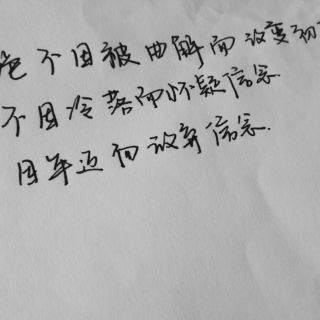 绝不因被曲解而改变初
不因冷落而怀疑信念
因年迈而放弃信念.